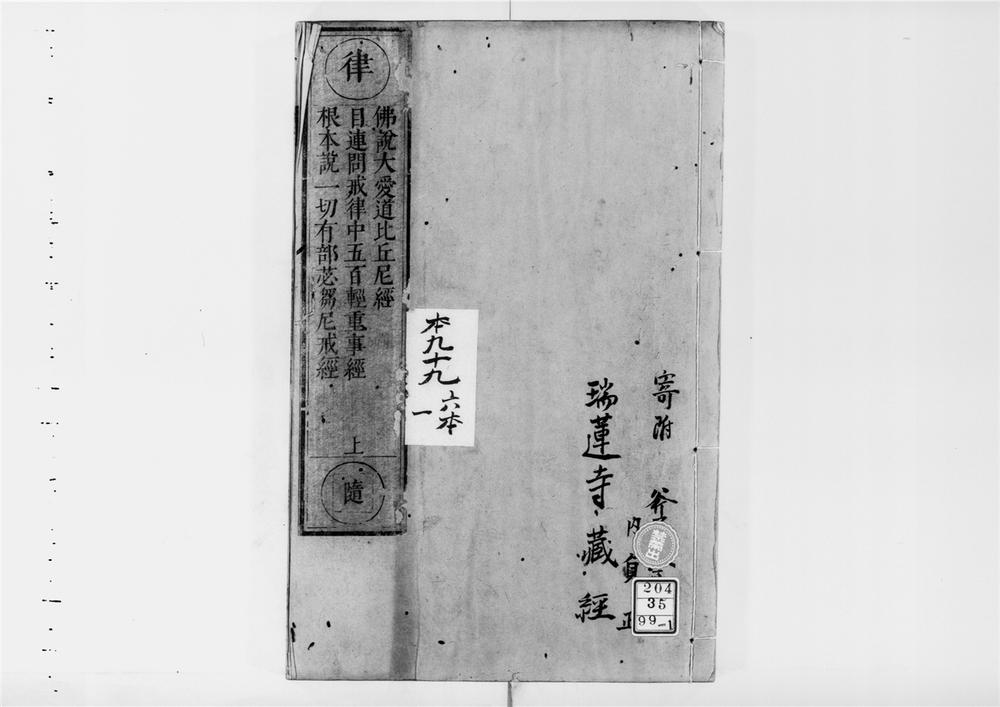 寄附
内貞正
瑞蓮寺藏經
禁帶出
204
35
99-1
本九十九
六本
一
律
佛說大愛道比丘尼經
目連問戒律中五百輕重事經
根本說一切有部苾芻尼戒經
上
隨